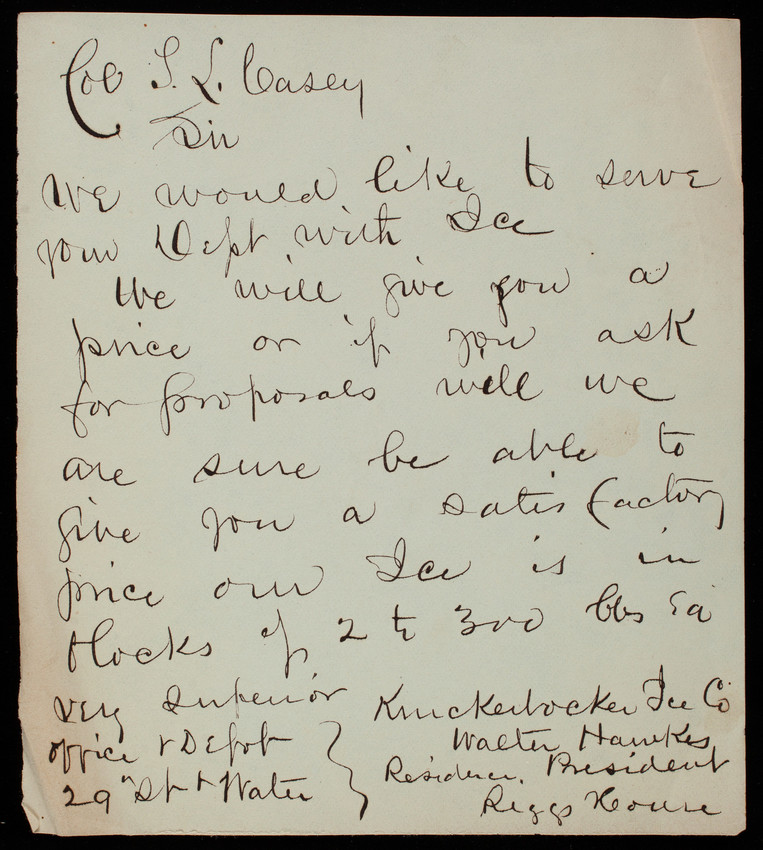 Col T. L. Casey
Sir
We would like to serve
your Dept with Ice
We will give you a
price or if you ask
for proposals will we
are sure be able to
give you a satisfactory
price our Ice is in
blocks of 2 to 300 lbs Ea
very superior
office & Depot
29" St & Water
Knickerbocker Ice Co
Walter Hawkes
President
Residence.
Riggs House